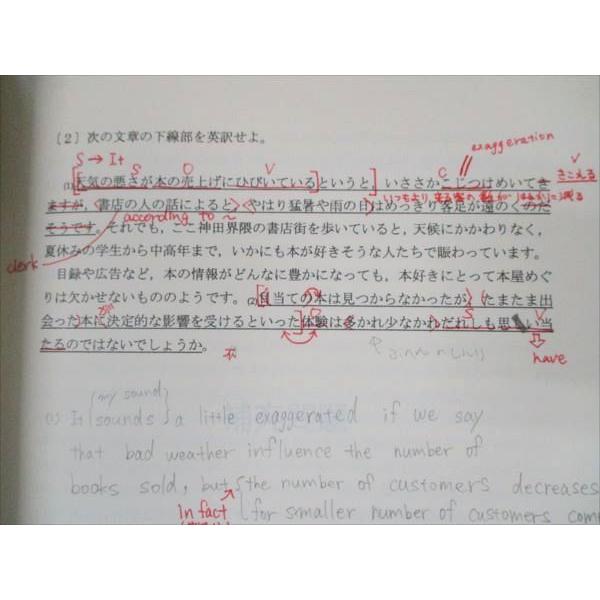 〔2〕次の文章の下線部を英訳せよ。
exaggeration
S → It
S O V C V
(1)天気の悪さが本の売上げにひびいているというと，いささかこじつけめいてき
きこえる
ますが，書店の人の話によると，やはり猛暑や雨の日はめっきり客足が遠のくのだ
according to ~
そうです。それでも，ここ神田界隈の書店街を歩いていると，天候にかかわりなく，
clerk
夏休みの学生から中高年まで，いかにも本が好きそうな人たちで賑わっています。
目録や広告など，本の情報がどんなに豊かになっても，本好きにとって本屋めぐ
りは欠かせないもののようです。(2)目当ての本は見つからなかったが，たまたま出
会った本に決定的な影響を受けるといった体験は多かれ少なかれだれしも思い当
S V
たるのではないでしょうか。
have
may sound
(1) It sounds a little exaggerated if we say
that bad weather influence the number of
books sold, but the number of customers decreases
In fact for smaller number of customers com